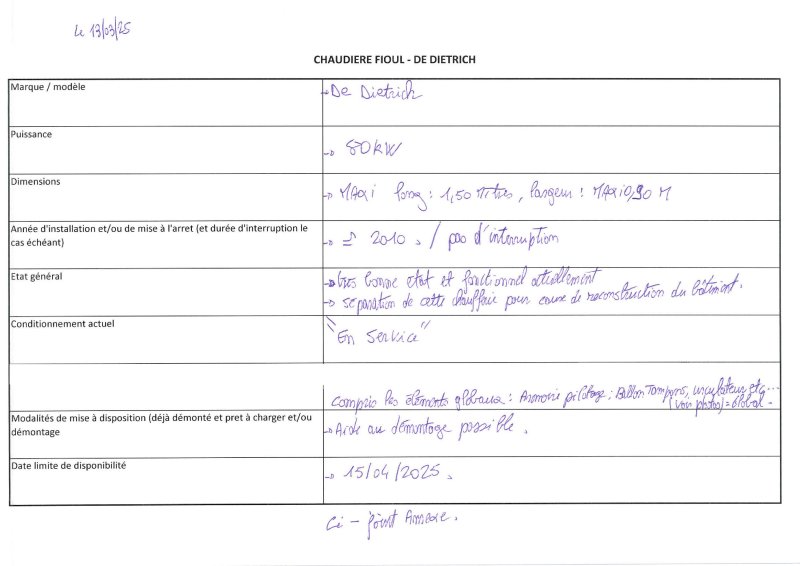 Le 13/03/25
CHAUDIERE FIOUL - DE DIETRICH
Marque / modèle
→ De Dietrich
Puissance
→ 80kW
Dimensions
→ MAxi long : 1,50 Mètres, largeur : MAxi 0,90 M
Année d'installation et/ou de mise à l'arret (et durée d'interruption le
cas échéant)
→ 2010. / pas d'interruption
Etat général
→ très bonne etat et fonctionnel actuellement
→ séparation de cette chaufferie pour cause de reconstruction du bâtiment.
Conditionnement actuel
"En Service"
Compris les éléments globaux : Armoire pilotage ; Ballon Tampons, circulateur etc...
(voir photos) = Global -
Modalités de mise à disposition (déjà démonté et pret à charger et/ou
démontage
→ Aide au démontage possible.
Date limite de disponibilité
→ 15/04/2025.
Ci - joint Annexe.